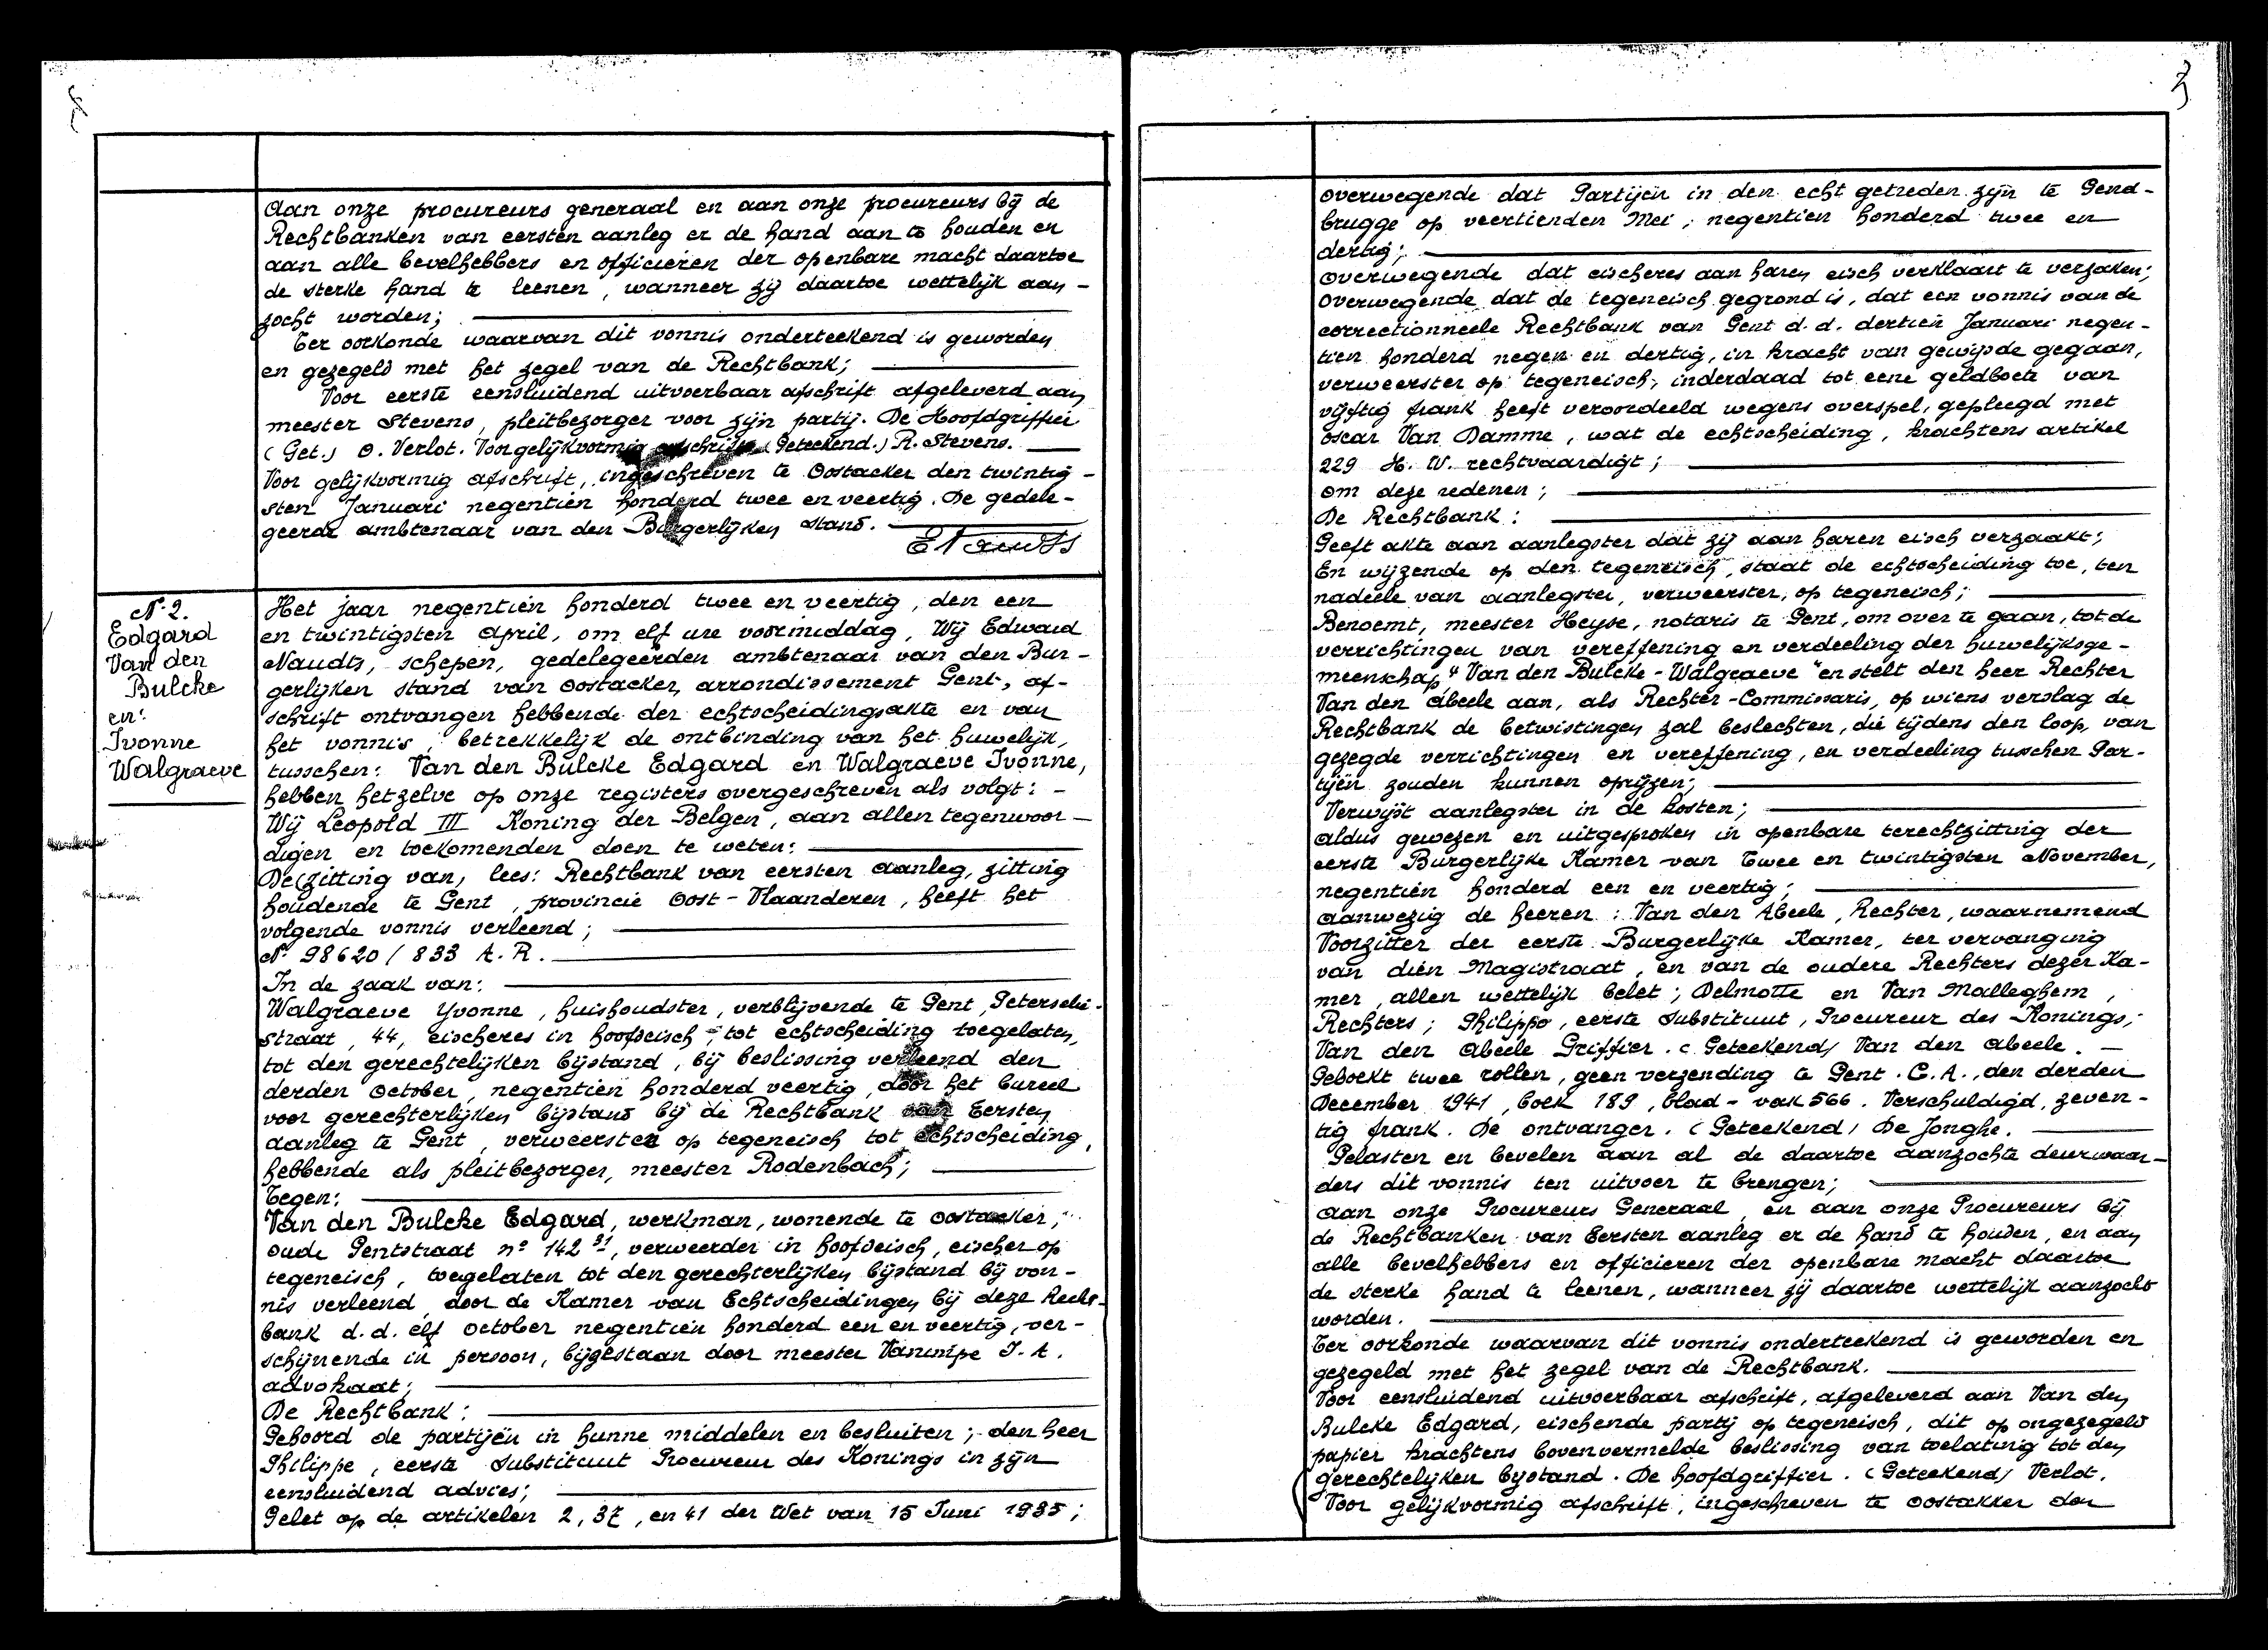 Aan onze procureurs generaal en aan onze procureurs bij de
Rechtbanken van eersten aanleg er de hand aan te houden en
aan alle bevelhebbers en officieren der openbare macht daartoe
de sterke hand te leenen, wanneer zij daartoe wettelijk aan-
zocht worden;
Ter oorkonde waarvan dit vonnis onderteekend is geworden
en gezegeld met het zegel van de Rechtbank;
Voor eerste eensluidend uitvoerbaar afschrift afgeleverd aan
meester Stevens, pleitbezorger voor zijn partij. De Hoofdgriffier
(Get.) O. Verlot. Voor gelijkvormig afschrift (Geteekend.) R. Stevens.
Voor gelijkvormig afschrift, ingeschreven te Oostacker den twintig-
sten Januari negentien honderd twee en veertig. De gedele-
geerde ambtenaar van den Burgerlijken stand.
E Naudts
N. 2.
Edgard
Van den
Bulcke
en:
Ivonne
Walgraeve
Het jaar negentien honderd twee en veertig, den een
en twintigsten April, om elf ure voormiddag, Wij Edward
Naudts, schepen, gedelegeerden ambtenaar van den Bur-
gerlijken stand van Oostacker, arrondissement Gent, af-
schrift ontvangen hebbende der echtscheidingsakte en van
het vonnis, betrekkelijk de ontbinding van het huwelijk,
tusschen: Van den Bulcke Edgard en Walgraeve Ivonne,
hebben hetzelve op onze registers overgeschreven als volgt: -
Wij Leopold III Koning der Belgen, aan allen tegenwoor-
digen en toekomenden doen te weten:
De (zitting van) lees: Rechtbank van eersten aanleg, zitting
houdende te Gent, provincie Oost-Vlaanderen, heeft het
volgende vonnis verleend;
N° 98620 / 833 A. R.
In de zaak van:
Walgraeve Yvonne, huishoudster, verblijvende te Gent, Peterselie-
straat, 44, eischeres in hoofdeisch, tot echtscheiding toegelaten,
tot den gerechtelijken bijstand, bij beslissing verleend den
derden October, negentien honderd veertig, door het bureel
voor gerechterlijken bijstand bij de Rechtbank van Eersten
aanleg te Gent, verweerster op tegeneisch tot echtscheiding,
hebbende als pleitbezorger, meester Rodenbach;
Tegen:
Van den Bulcke Edgard, werkman, wonende te Oostacker,
oude Gentstraat n° 142, verweerder in hoofdeisch, eischer op
tegeneisch, toegelaten tot den gerechterlijken bijstand bij von-
nis verleend door de Kamer van Echtscheidingen bij deze Recht-
bank d.d. elf October negentien honderd een en veertig, ver-
schijnende in persoon, bijgestaan door meester Vanimpe J. A.
advokaat;
De Rechtbank:
Gehoord de partijën in hunne middelen en besluiten; den heer
Philippe, eerste Substituut Procureur des Konings in zijn
eensluidend advies;
Gelet op de artikelen 2, 37, en 41 der Wet van 15 Juni 1935;
overwegende dat Partijen in den echt getreden zijn te Gend-
brugge op veertienden Mei, negentien honderd twee en
dertig;
overwegende dat eischeres aan haren eisch verklaart te verzaken;
Overwegende dat de tegeneisch gegrond is, dat een vonnis van de
correctionneele Rechtbank van Gent d.d. dertien Januari negen-
tien honderd negen en dertig, in kracht van gewijsde gegaan,
verweerster op tegeneisch, inderdaad tot eene geldboete van
vijftig frank heeft veroordeeld wegens overspel, gepleegd met
Oscar Van Damme, wat de echtscheiding, krachtens artikel
229 H. W. rechtvaardigt;
om deze redenen;
De Rechtbank:
Geeft akte aan aanlegster dat zij aan haren eisch verzaakt;
En wijzende op den tegeneisch, staat de echtscheiding toe, ten
nadeele van aanlegster, verweerster, op tegeneisch;
Benoemt, meester Heyse, notaris te Gent, om over te gaan, tot de
verrichtingen van vereffening en verdeeling der huwelijksge-
meenschap "Van den Bulcke-Walgraeve" en stelt den heer Rechter
Van den Abeele aan, als Rechter-Commissaris, op wiens verslag de
Rechtbank de betwistingen zal beslechten, die tijdens den loop, van
gezegde verrichtingen en vereffening, en verdeeling tusschen Par-
tijen zouden kunnen oprijzen;
Verwijst aanlegster in de kosten;
aldus gewezen en uitgesproken in openbare terechtzitting der
eerste Burgerlijke Kamer van Twee en twintigsten November,
negentien honderd een en veertig;
aanwezig de heeren: Van den Abeele, Rechter, waarnemend
Voorzitter der eerste Burgerlijke Kamer, ter vervanging
van dien Magistraat, en van de oudere Rechters dezer Ka-
mer, allen wettelijk belet; Delmotte en Van Malleghem,
Rechters; Philippo, eerste Substituut, Procureur des Konings;
Van den Abeele Griffier. (Geteekend) Van den Abeele. -
Geboekt twee rollen, geen verzending te Gent. C. A., den derden
December 1941, boek 189, blad - vak 566. Verschuldigd, zeven-
tig frank. De ontvanger. (Geteekend) De Jonghe.
Gelasten en bevelen aan al de daartoe aanzochte deurwaar-
ders dit vonnis ten uitvoer te brengen;
aan onze Procureurs Generaal, en aan onze Procureurs bij
de Rechtbanken van Eersten aanleg er de hand te houden, en aan
alle bevelhebbers en officieren der openbare macht daartoe
de sterke hand te leenen, wanneer zij daartoe wettelijk aanzocht
worden.
Ter oorkonde waarvan dit vonnis onderteekend is geworden en
gezegeld met het zegel van de Rechtbank.
Voor eensluidend uitvoerbaar afschrift, afgeleverd aan Van den
Bulcke Edgard, eischende partij op tegeneisch, dit op ongezegeld
papier krachtens bovenvermelde beslissing van toelating tot den
gerechtelijken bijstand. De hoofdgriffier. (Geteekend) Verlot.
Voor gelijkvormig afschrift, ingeschreven te Oostakker den